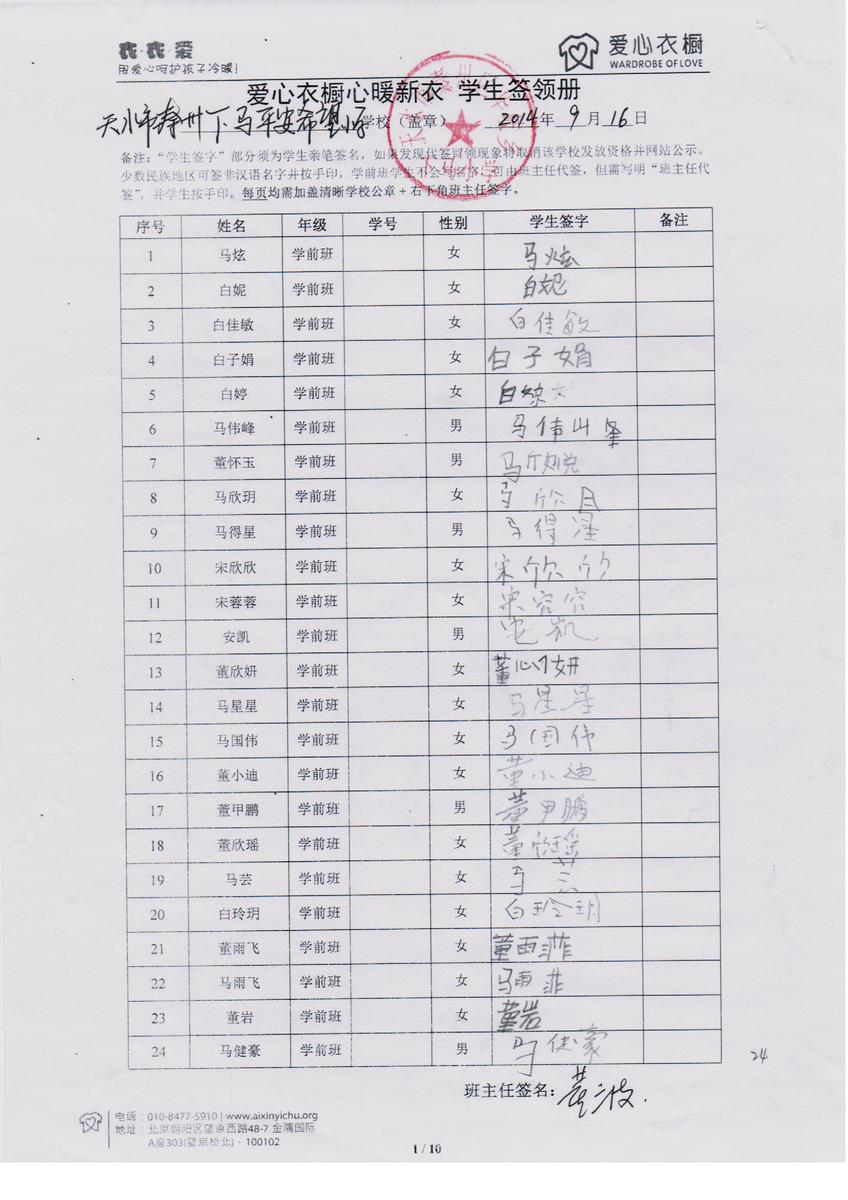 衣·衣·爱
用爱心呵护孩子冷暖!
爱心衣橱
WARDROBE OF LOVE
爱心衣橱心暖新衣 学生签领册
下马平安希望小学校(盖章) 2014年9月16日
备注:“学生签字”部分须为学生亲笔签名,如果发现代签冒领现象将取消该学校发放资格并网站公示。
少数民族地区可签非汉语名字并按手印,学前班学生不会写名字,可由班主任代签,但需写明“班主任代
签”,并学生按手印。每页均需加盖清晰学校公章+右下角班主任签字。
序号 姓名 年级 学号 性别 学生签字 备注
1 马炫 学前班 女 马炫
2 白妮 学前班 女 白妮
3 白佳敏 学前班 女 白佳敏
4 白子娟 学前班 女 白子娟
5 白婷 学前班 女 白
6 马伟峰 学前班 男 马伟峰
7 董怀玉 学前班 男 马
8 马欣玥 学前班 女 马欣月
9 马得星 学前班 男 马得星
10 宋欣欣 学前班 女 宋欣欣
11 宋蓉蓉 学前班 女 宋容容
12 安凯 学前班 男 安凯
13 董欣妍 学前班 女 董心妍
14 马星星 学前班 女 马星星
15 马国伟 学前班 女 马国伟
16 董小迪 学前班 女 董小迪
17 董甲鹏 学前班 男 董甲鹏
18 董欣瑶 学前班 女 董欣瑶
19 马芸 学前班 女 马芸
20 白玲玥 学前班 女 白玲玥
21 董雨飞 学前班 女 董雨菲
22 马雨飞 学前班 女 马雨菲
23 董岩 学前班 女 董岩
24 马健豪 学前班 男 马健豪
24
班主任签名:黄波.
电话:010-8477-5910 | www.aixinyichu.org
地址:北京朝阳区望京西路48-7 金隅国际
A座303(望京桥北)·100102
1 / 10